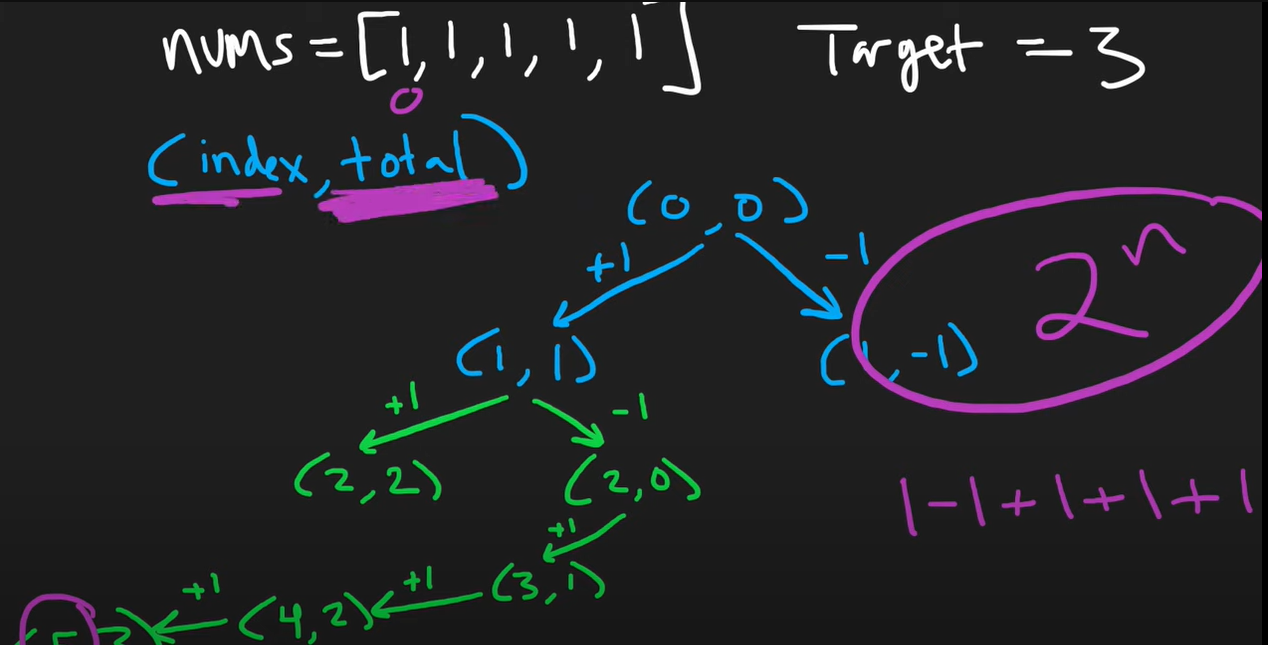 nums = [1, 1, 1, 1, 1] Target = 3
0
(index, total)
(0, 0)
+1 -1
2^n
(1, 1) (1, -1)
+1 -1
(2, 2) (2, 0)
1-1+1+1+1
+1
(3, 1)
+1 +1
(4, 2)
(5 3)